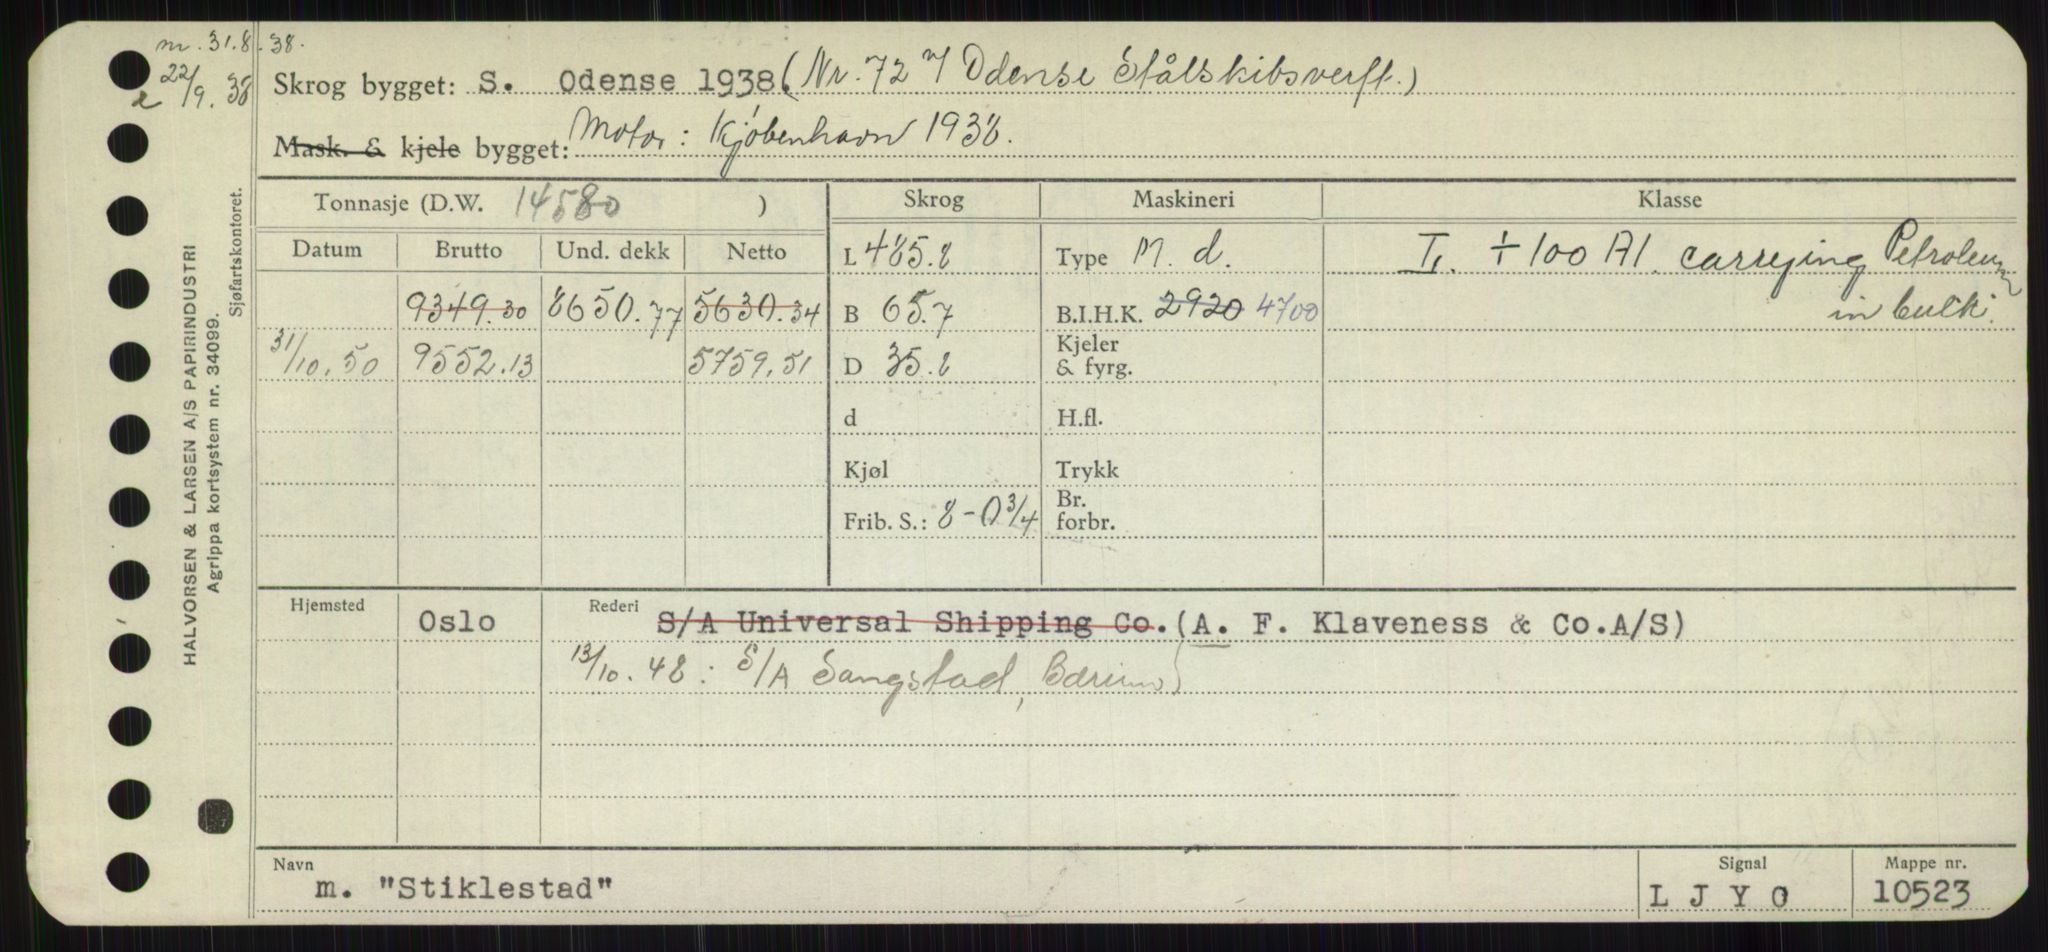 m. 31.8.38.
22/9. 38
Skrog bygget: S. Odense 1938. (Nr. 72 v/ Odense Stålskibsverft.)
Mask. & kjele bygget: Motor: Kjøbenhavn 1938.
Tonnasje (D.W. 14580 ) Skrog Maskineri Klasse
Datum Brutto Und. dekk Netto L 485.8 Type M. d. I. ÷ 100 A1. carrying Petroleum
9349.30 8650.77 5630.34 B 65.7 B.I.H.K. 2920 4700 in bulk.
31/10.50 9552.13 5759.51 D 35.8 Kjeler
& fyrg.
d H.fl.
Kjøl Trykk
Frib. S.: 8-0 3/4 Br.
forbr.
Hjemsted Oslo Rederi S/A Universal Shipping Co. (A. F. Klaveness & Co.A/S)
13/10. 48: S/A Sangstad, Bærum)
Navn m. "Stiklestad" Signal L J Y O Mappe nr. 10523
HALVORSEN & LARSEN A/S PAPIRINDUSTRI
Agrippa kortsystem nr. 34099.
Sjøfartskontoret.